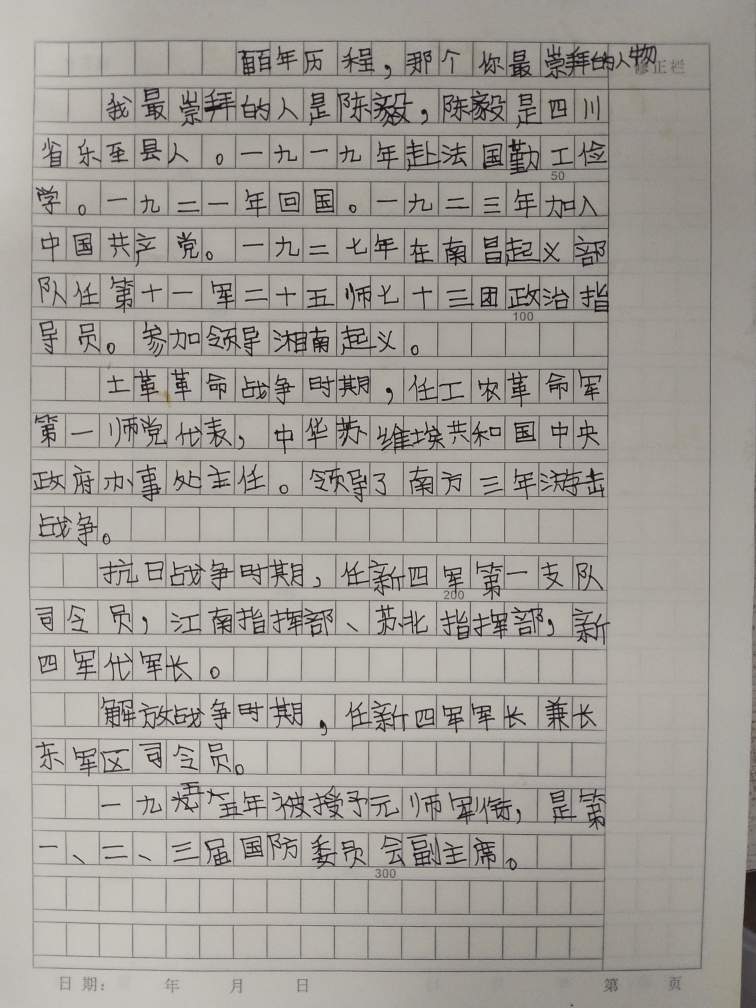 百年历程，那个你最崇拜的人物
修正栏
我最崇拜的人是陈毅，陈毅是四川
省乐至县人。一九一九年赴法国勤工俭
50
学。一九二一年回国。一九二三年加入
中国共产党。一九二七年在南昌起义部
队任第十一军二十五师七十三团政治指
100
导员。参加领导湘南起义。
土革革命战争时期，任工农革命军
第一师党代表，中华苏维埃共和国中央
政府办事处主任。领导了南方三年游击
战争。
抗日战争时期，任新四军第一支队
200
司令员，江南指挥部、苏北指挥部，新
四军代军长。
解放战争时期，任新四军军长兼长
东军区司令员。
一九五五年被授予元师军衔，是第
一、二、三届国防委员会副主席。
300
日期： 年 月 日 第 页